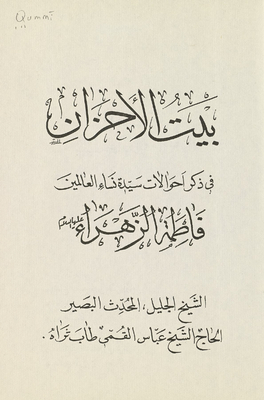 Qummi
...
بيت الأحزان
في ذكر أحوالات سيدة نساء العالمين
فاطمة الزهراء عليها السلام
الشيخ الجليل، المحدث البصير
الحاج الشيخ عباس القمي طاب ثراه.